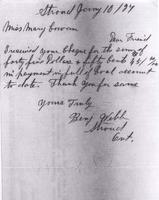 Stroud Jany 10/34
Miss Mary Cowan
Dear Friend
I received your cheque for the sum of
forty five Dollars &
in payment in full of coal account
to date. Thank you for same
Yours Truly
Benj Webb
Stroud
Ont.